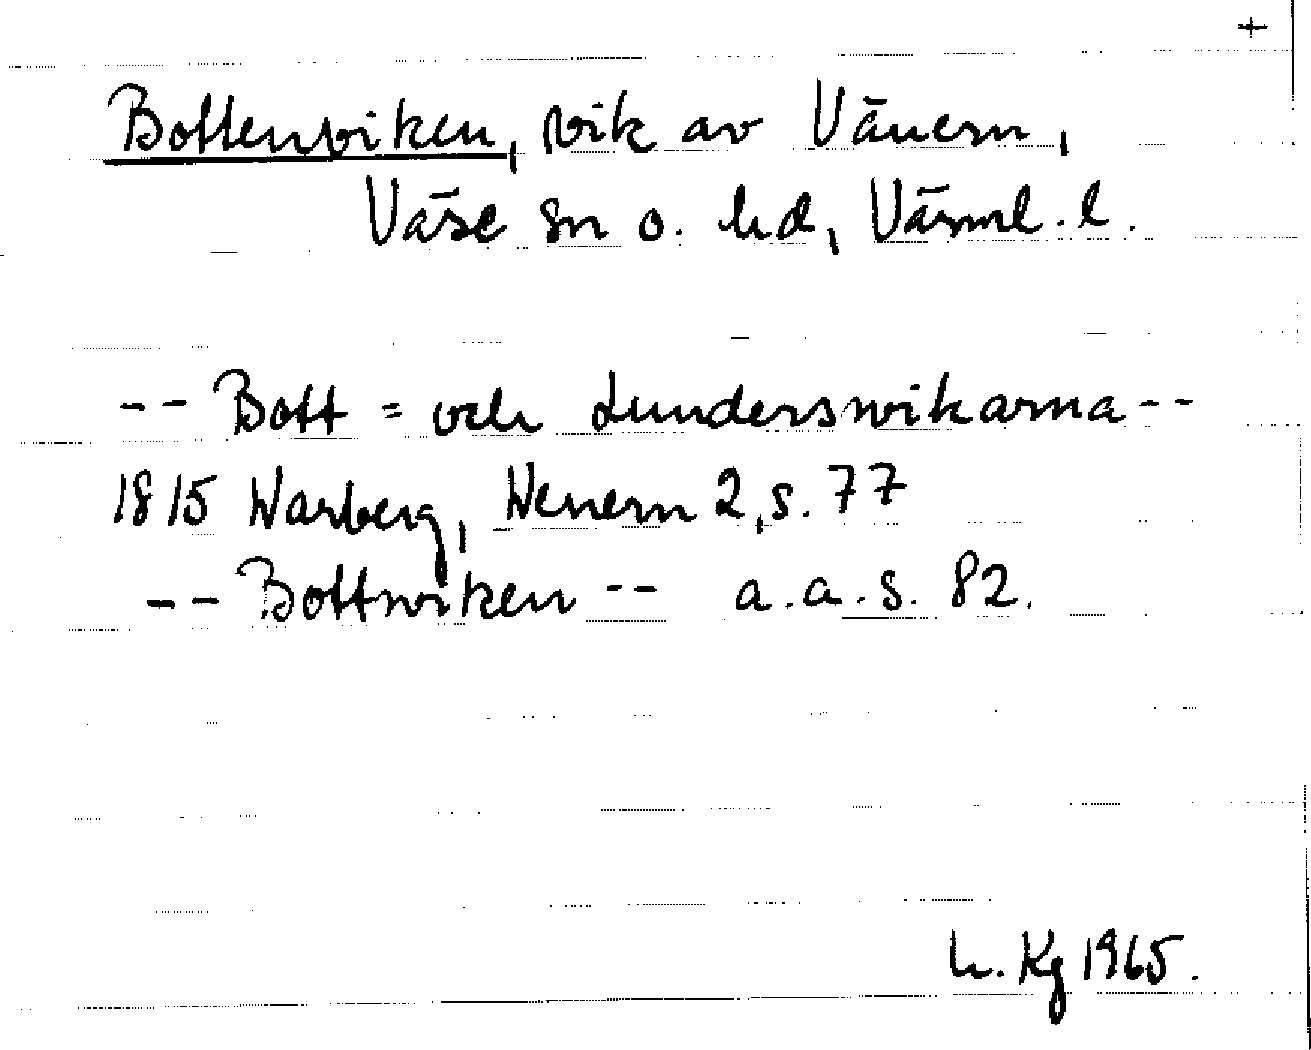 +
Bottenviken, vik av Vänern,
Väse sn o. hd, Värml. l.
-- Bott = och Lunderswikarna --
1815 Warberg, Wenern 2, s. 77
-- Bottwiken -- a.a.s. 82.
h. Kg 1965.